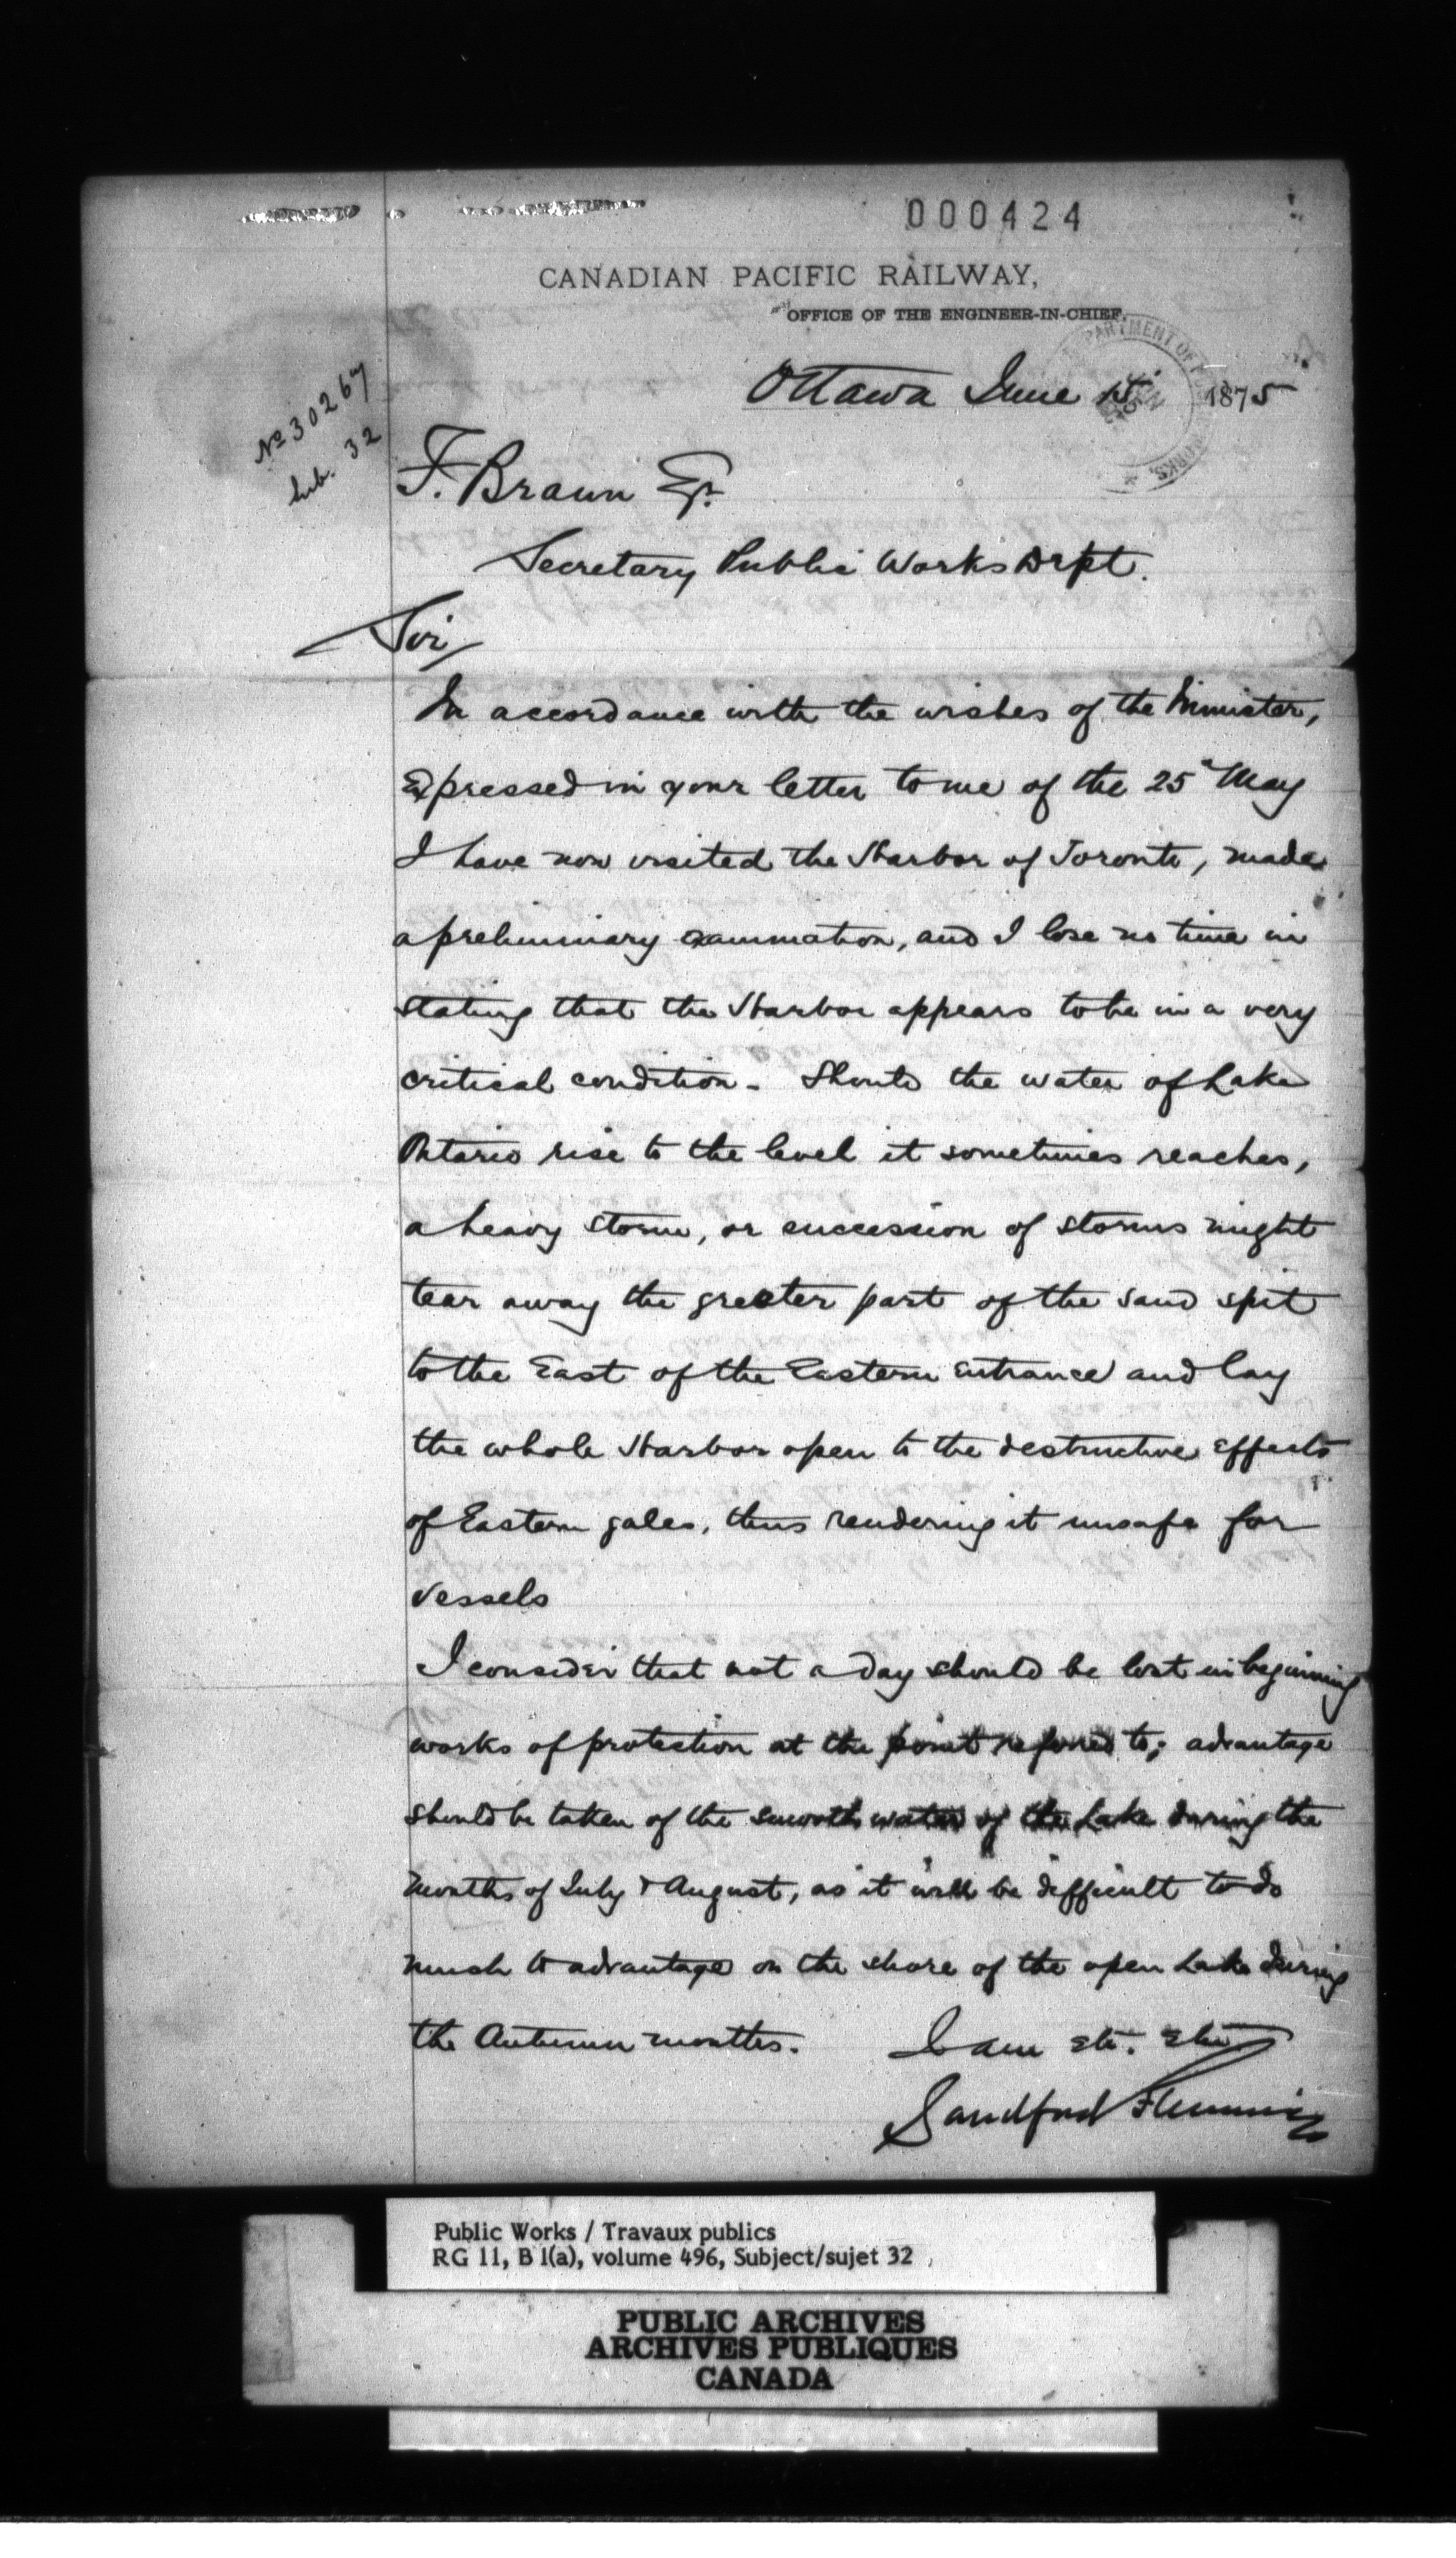 000424
CANADIAN PACIFIC RAILWAY,
OFFICE OF THE ENGINEER-IN-CHIEF,
Ottawa June 15 1875
No 30267
Sub. 32
F. Braun Esq.
Secretary Public Works Dept.
Sir,
In accordance with the wishes of the Minister,
Expressed in your letter to me of the 25th May
I have now visited the Harbor of Toronto, made
a preliminary examination, and I lose no time in
stating that the Harbor appears to be in a very
critical condition. Should the water of Lake
Ontario rise to the level it sometimes reaches,
a heavy storm, or succession of storms might
tear away the greater part of the sand spit
to the East of the Eastern entrance and lay
the whole Harbor open to the destructive effects
of Eastern gales, thus rendering it unsafe for
vessels
I consider that not a day should be lost in beginning
works of protection at the point referred to; advantage
should be taken of the smooth water of the Lake during the
months of July & August, as it will be difficult to do
much to advantage on the shore of the open Lake during
the Autumn months. I am etc. etc.
Sandford Fleming
Public Works / Travaux publics
RG 11, B 1(a), volume 496, Subject/sujet 32
PUBLIC ARCHIVES
ARCHIVES PUBLIQUES
CANADA